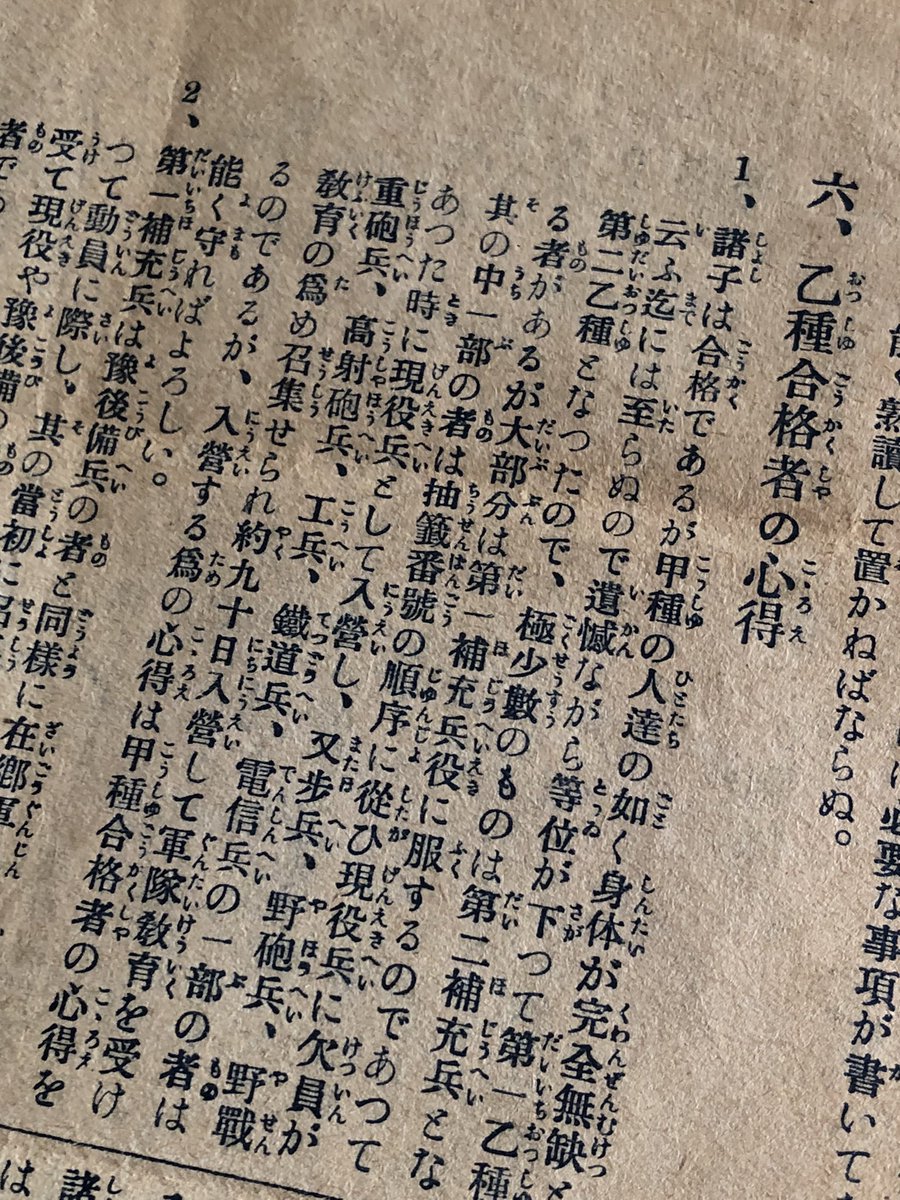 能く熟讀して置かねばならぬ。
は必要な事項が書いて
六、乙種合格者の心得
1、諸子は合格であるが甲種の人達の如く身体が完全無缺と
云ふ迄には至らぬので遺憾ながら等位が下つて第一乙種
第二乙種となつたので、極少數のものは第二補充兵とな
る者があるが大部分は第一補充兵役に服するのであつて
其の中一部の者は抽籤番號の順序に從ひ現役兵に欠員が
あつた時に現役兵として入營し、又步兵、野砲兵、野戰
重砲兵、高射砲兵、工兵、鐵道兵、電信兵の一部の者は
敎育の爲め召集せられ約九十日入營して軍隊敎育を受け
るのであるが、入營する爲の心得は甲種合格者の心得を
能く守ればよろしい。
2、第一補充兵は豫後備兵の者と同樣に在鄕軍
つて動員に際し、其の當初に召
受て現役や豫後備の
者で
諸
は